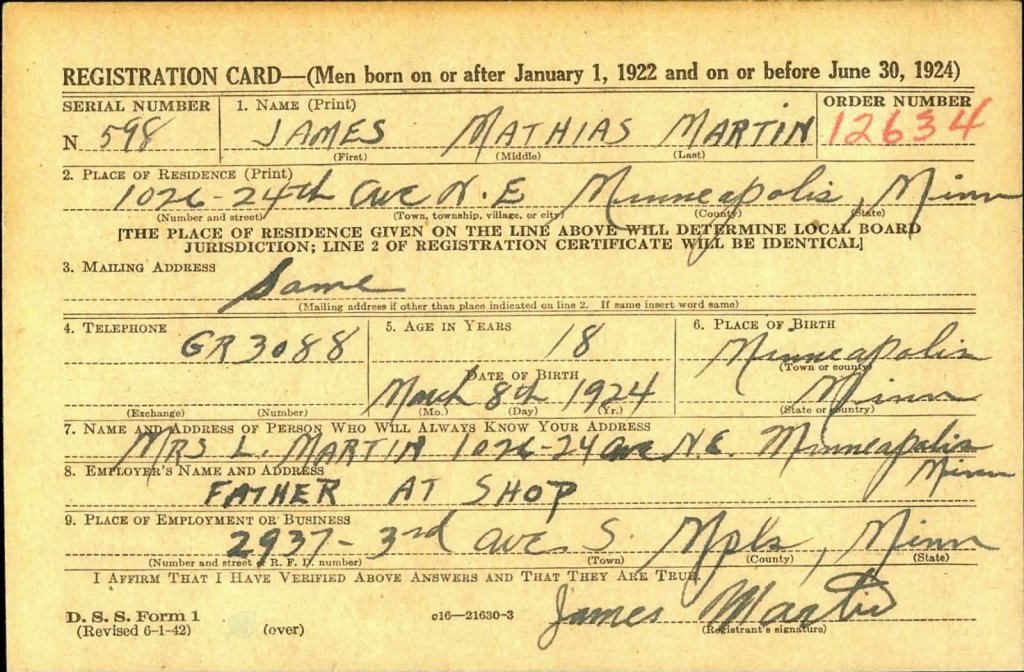 REGISTRATION CARD—(Men born on or after January 1, 1922 and on or before June 30, 1924)
SERIAL NUMBER 1. NAME (Print) ORDER NUMBER
N 598 JAMES MATHIAS MARTIN 12634
(First) (Middle) (Last)
2. PLACE OF RESIDENCE (Print)
1026-24th ave N.E Minneapolis, Minn
(Number and street) (Town, township, village, or city) (County) (State)
[THE PLACE OF RESIDENCE GIVEN ON THE LINE ABOVE WILL DETERMINE LOCAL BOARD
JURISDICTION; LINE 2 OF REGISTRATION CERTIFICATE WILL BE IDENTICAL]
3. MAILING ADDRESS
Same
(Mailing address if other than place indicated on line 2. If same insert word same)
4. TELEPHONE 5. AGE IN YEARS 6. PLACE OF BIRTH
GR 3088 18 Minneapolis
(Town or county)
DATE OF BIRTH
March 8th 1924 Minn
(Exchange) (Number) (Mo.) (Day) (Yr.) (State or country)
7. NAME AND ADDRESS OF PERSON WHO WILL ALWAYS KNOW YOUR ADDRESS
MRS L. MARTIN 1026-24 ave N.E. Minneapolis
Minn
8. EMPLOYER'S NAME AND ADDRESS
FATHER AT SHOP
9. PLACE OF EMPLOYMENT OR BUSINESS
2937- 3rd ave. S. Mpls, Minn
(Number and street or R. F. D. number) (Town) (County) (State)
I AFFIRM THAT I HAVE VERIFIED ABOVE ANSWERS AND THAT THEY ARE TRUE.
D. S. S. Form 1 c16—21630-3 James Martin
(Revised 6-1-42) (over) (Registrant's signature)